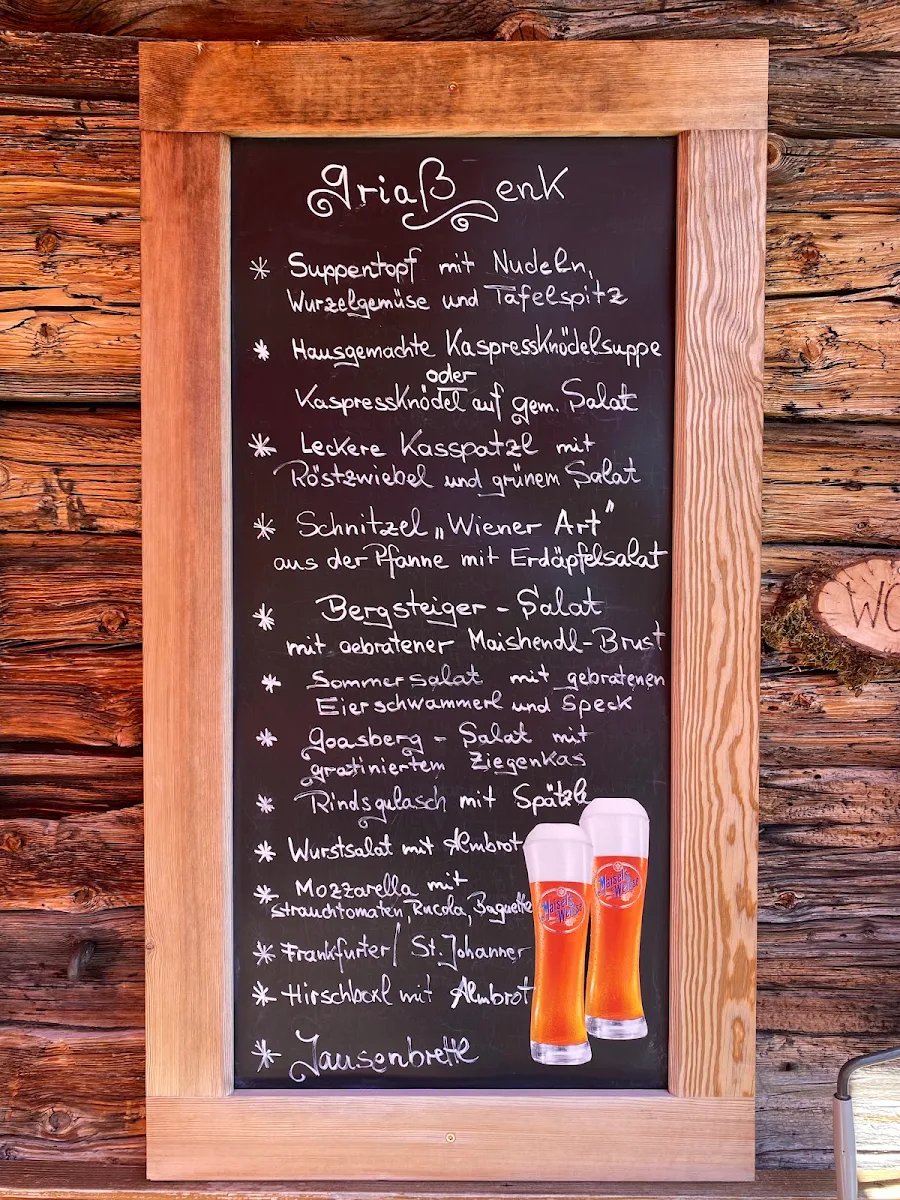 Griaß enk
* Suppentopf mit Nudeln,
Wurzelgemüse und Tafelspitz
* Hausgemachte Kaspressknödelsuppe
oder
Kaspressknödel auf gem. Salat
* Leckere Kasspatzl mit
Röstzwiebel und grünem Salat
* Schnitzel „Wiener Art"
aus der Pfanne mit Erdäpfelsalat
* Bergsteiger - Salat
mit gebratener Maishendl-Brust
* Sommersalat mit gebratenen
Eierschwammerl und Speck
* Goasberg - Salat mit
gratiniertem Ziegenkas
* Rindsgulasch mit Spätzle
* Wurstsalat mit Almbrot
* Mozzarella mit
Strauchtomaten, Rucola, Baguette
* Frankfurter / St. Johanner
* Hirschboxl mit Almbrot
* Jausenbrettl
Maisel's
Weisse
Maisel's
Weisse
WC